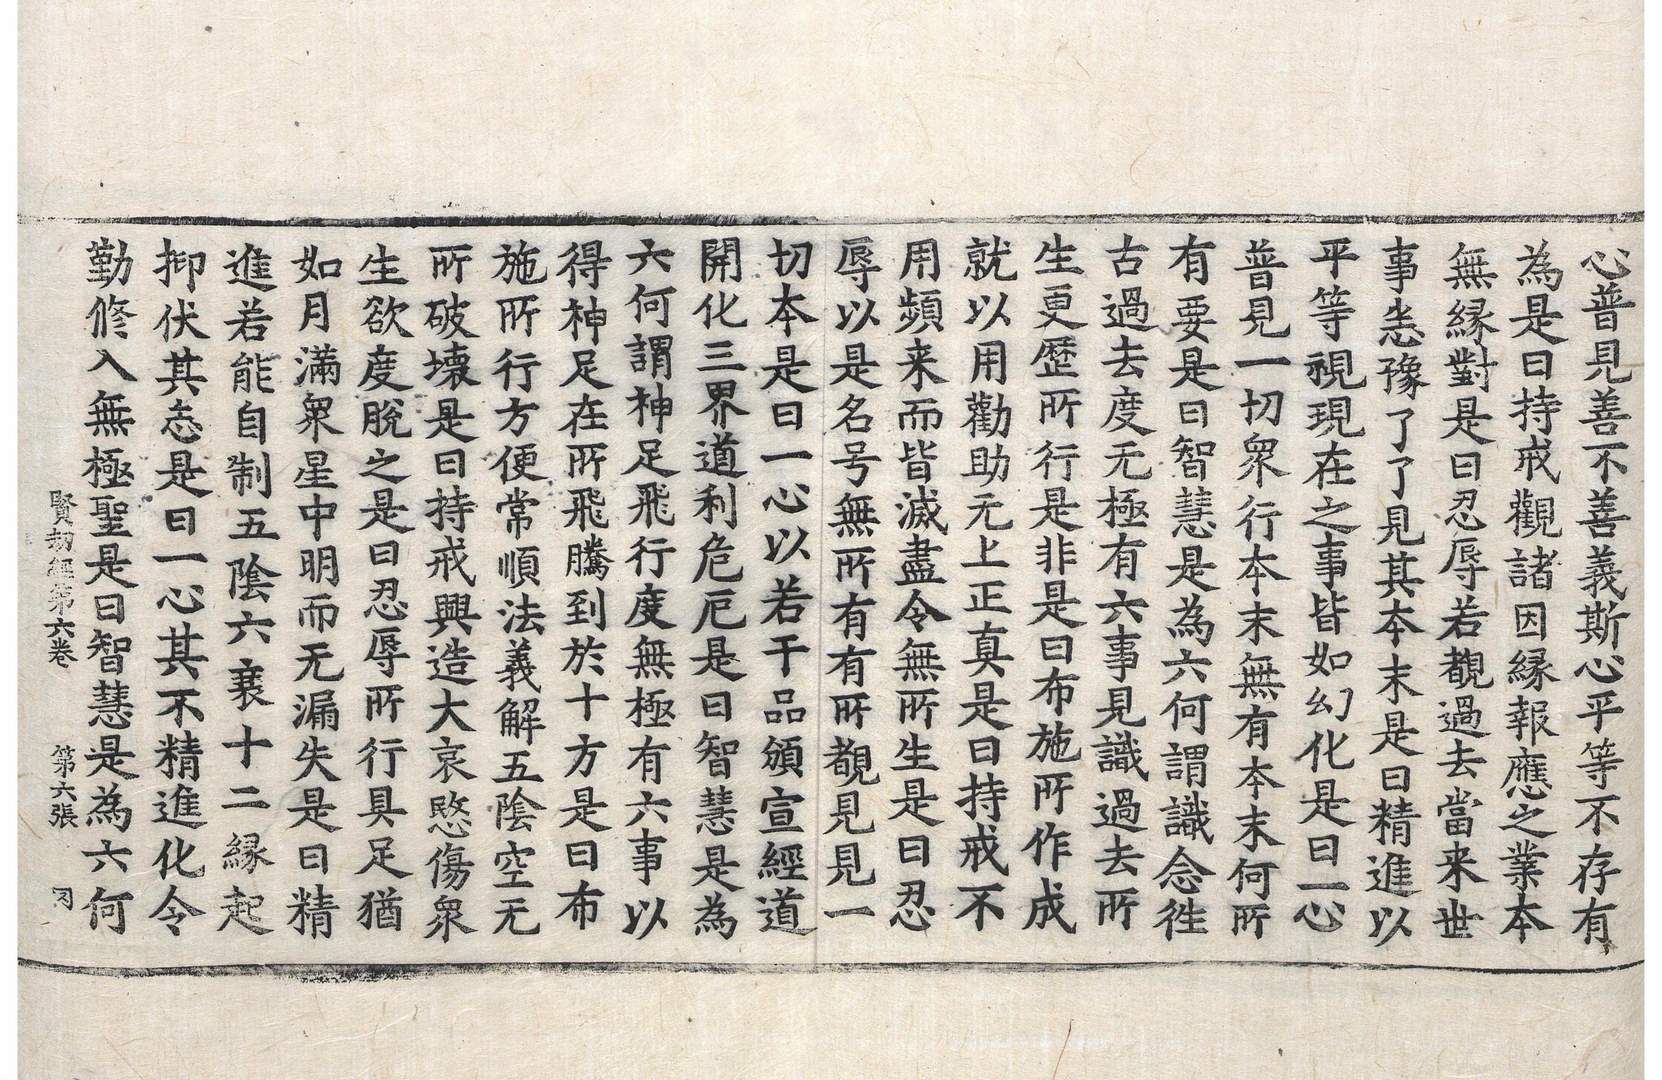 心普見善不善義斯心平等不存有
為是曰持戒觀諸因縁報應之業本
無縁對是曰忍辱若覩過去當来世
事悉豫了了見其本末是曰精進以
平等視現在之事皆如幻化是曰一心
普見一切衆行本末無有本末何所
有要是曰智慧是為六何謂識念徃
古過去度无極有六事見識過去所
生更歷所行是非是曰布施所作成
就以用勸助无上正真是曰持戒不
用頻来而皆滅盡令無所生是曰忍
辱以是名号無所有有所覩見見一
切本是曰一心以若干品頒宣經道
開化三界道利危厄是曰智慧是為
六何謂神足飛行度無極有六事以
得神足在所飛騰到於十方是曰布
施所行方便常順法義解五陰空无
所破壞是曰持戒興造大哀愍傷衆
生欲度脫之是曰忍辱所行具足猶
如月滿衆星中明而无漏失是曰精
進若能自制五陰六衰十二縁起
抑伏其志是曰一心其不精進化令
勤修入無極聖是曰智慧是為六何
賢劫經第六卷 第六張